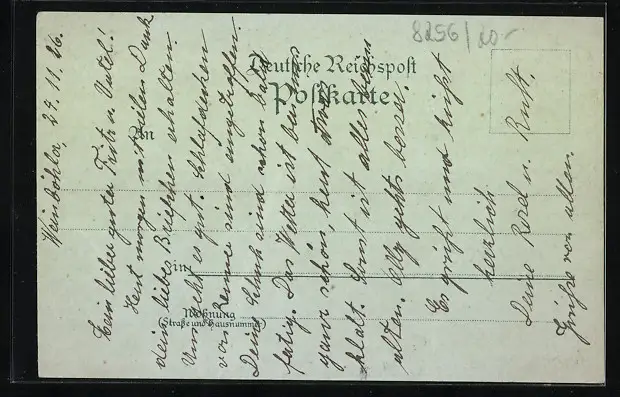 8256/20-
Deutsche Reichspost
Postkarte
An
in
Wohnung
(Straße und Hausnummer)
Weinböhla, 29. 11. 26.
Mein lieber guter Fritz u. Vatel!
Heut morgen mit vielen Dank
dein liebes Briefchen erhalten
Uns geht es gut. Schlafdecken
von Renner sind eingetroffen.
Deine Schuh sind schon bald
fertig. Das Wetter ist bei uns
ganz schön, heut
kalt. Sonst ist alles beim
alten. Ollg gehts besser.
Es grüßt und küßt
herzlich
Deine u. Ruth.
Grüße von allen.